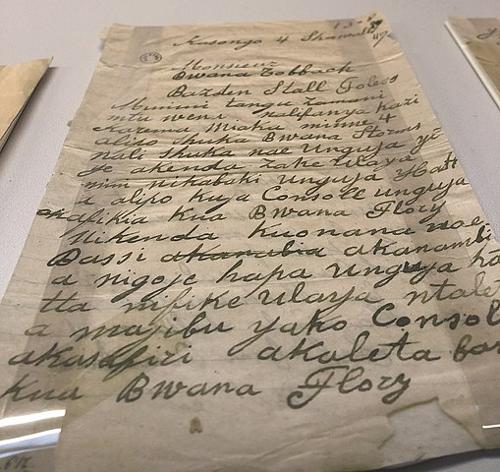 Kasongo 4 Shawall
Monsieur
Bwana Tobback
Bazden Stall Foless
Mimimi tangu zamani
mtu weni nalifanya kazi
Karema Miaka minne 4
alipo shuka Bwana Storms
nali shuka nae Unguja yē
ye akenda zake Ulaya
mimi nikabaki Unguja Hatt
a alipo kuja Consoll unguja
akafikia kua Bwana Flory
Nikenda kuonana nae
Bassi akanabia akanambi
a nigoje hapa Unguja ha
tta nifike Ulaya ntale
a majibu yako Consoll
akasafiri akaleta bar
kua Bwana Flory